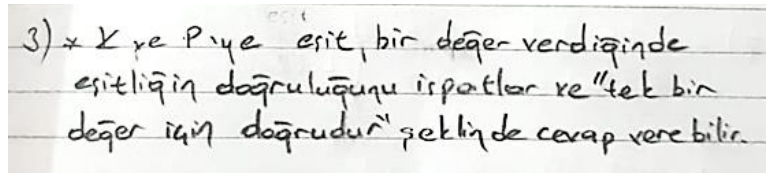 3) * K ye P'ye eşit, bir değer verdiğinde
eşitliğin doğruluğunu ispatlar ve "tek bin
değer için doğrudur" şeklinde cevap verebilir.